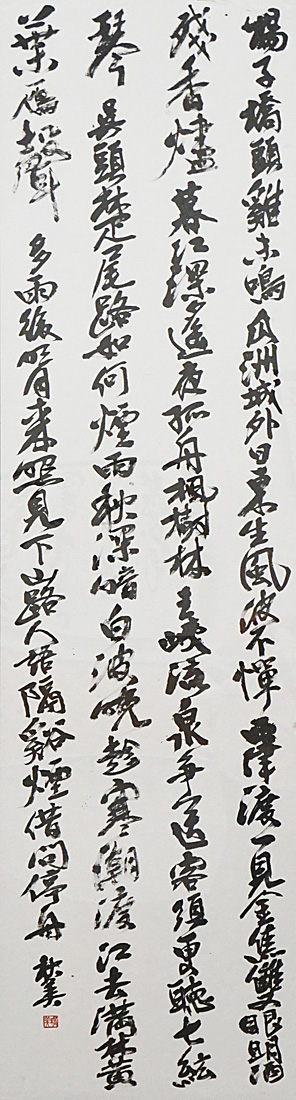 揚子橋頭雞未鳴瓜洲城外日東生風波不憚西津渡一見金焦雙眼明酒
殘香燼暮江深遙夜孤舟楓樹林三峽流泉爭送客須更聽七絃
琴吳頭楚尾路如何煙雨秋深暗白波晚趁寒潮渡江去滿林黃
葉雁聲多雨後明月來照見下山路人語隔谿煙借問停舟